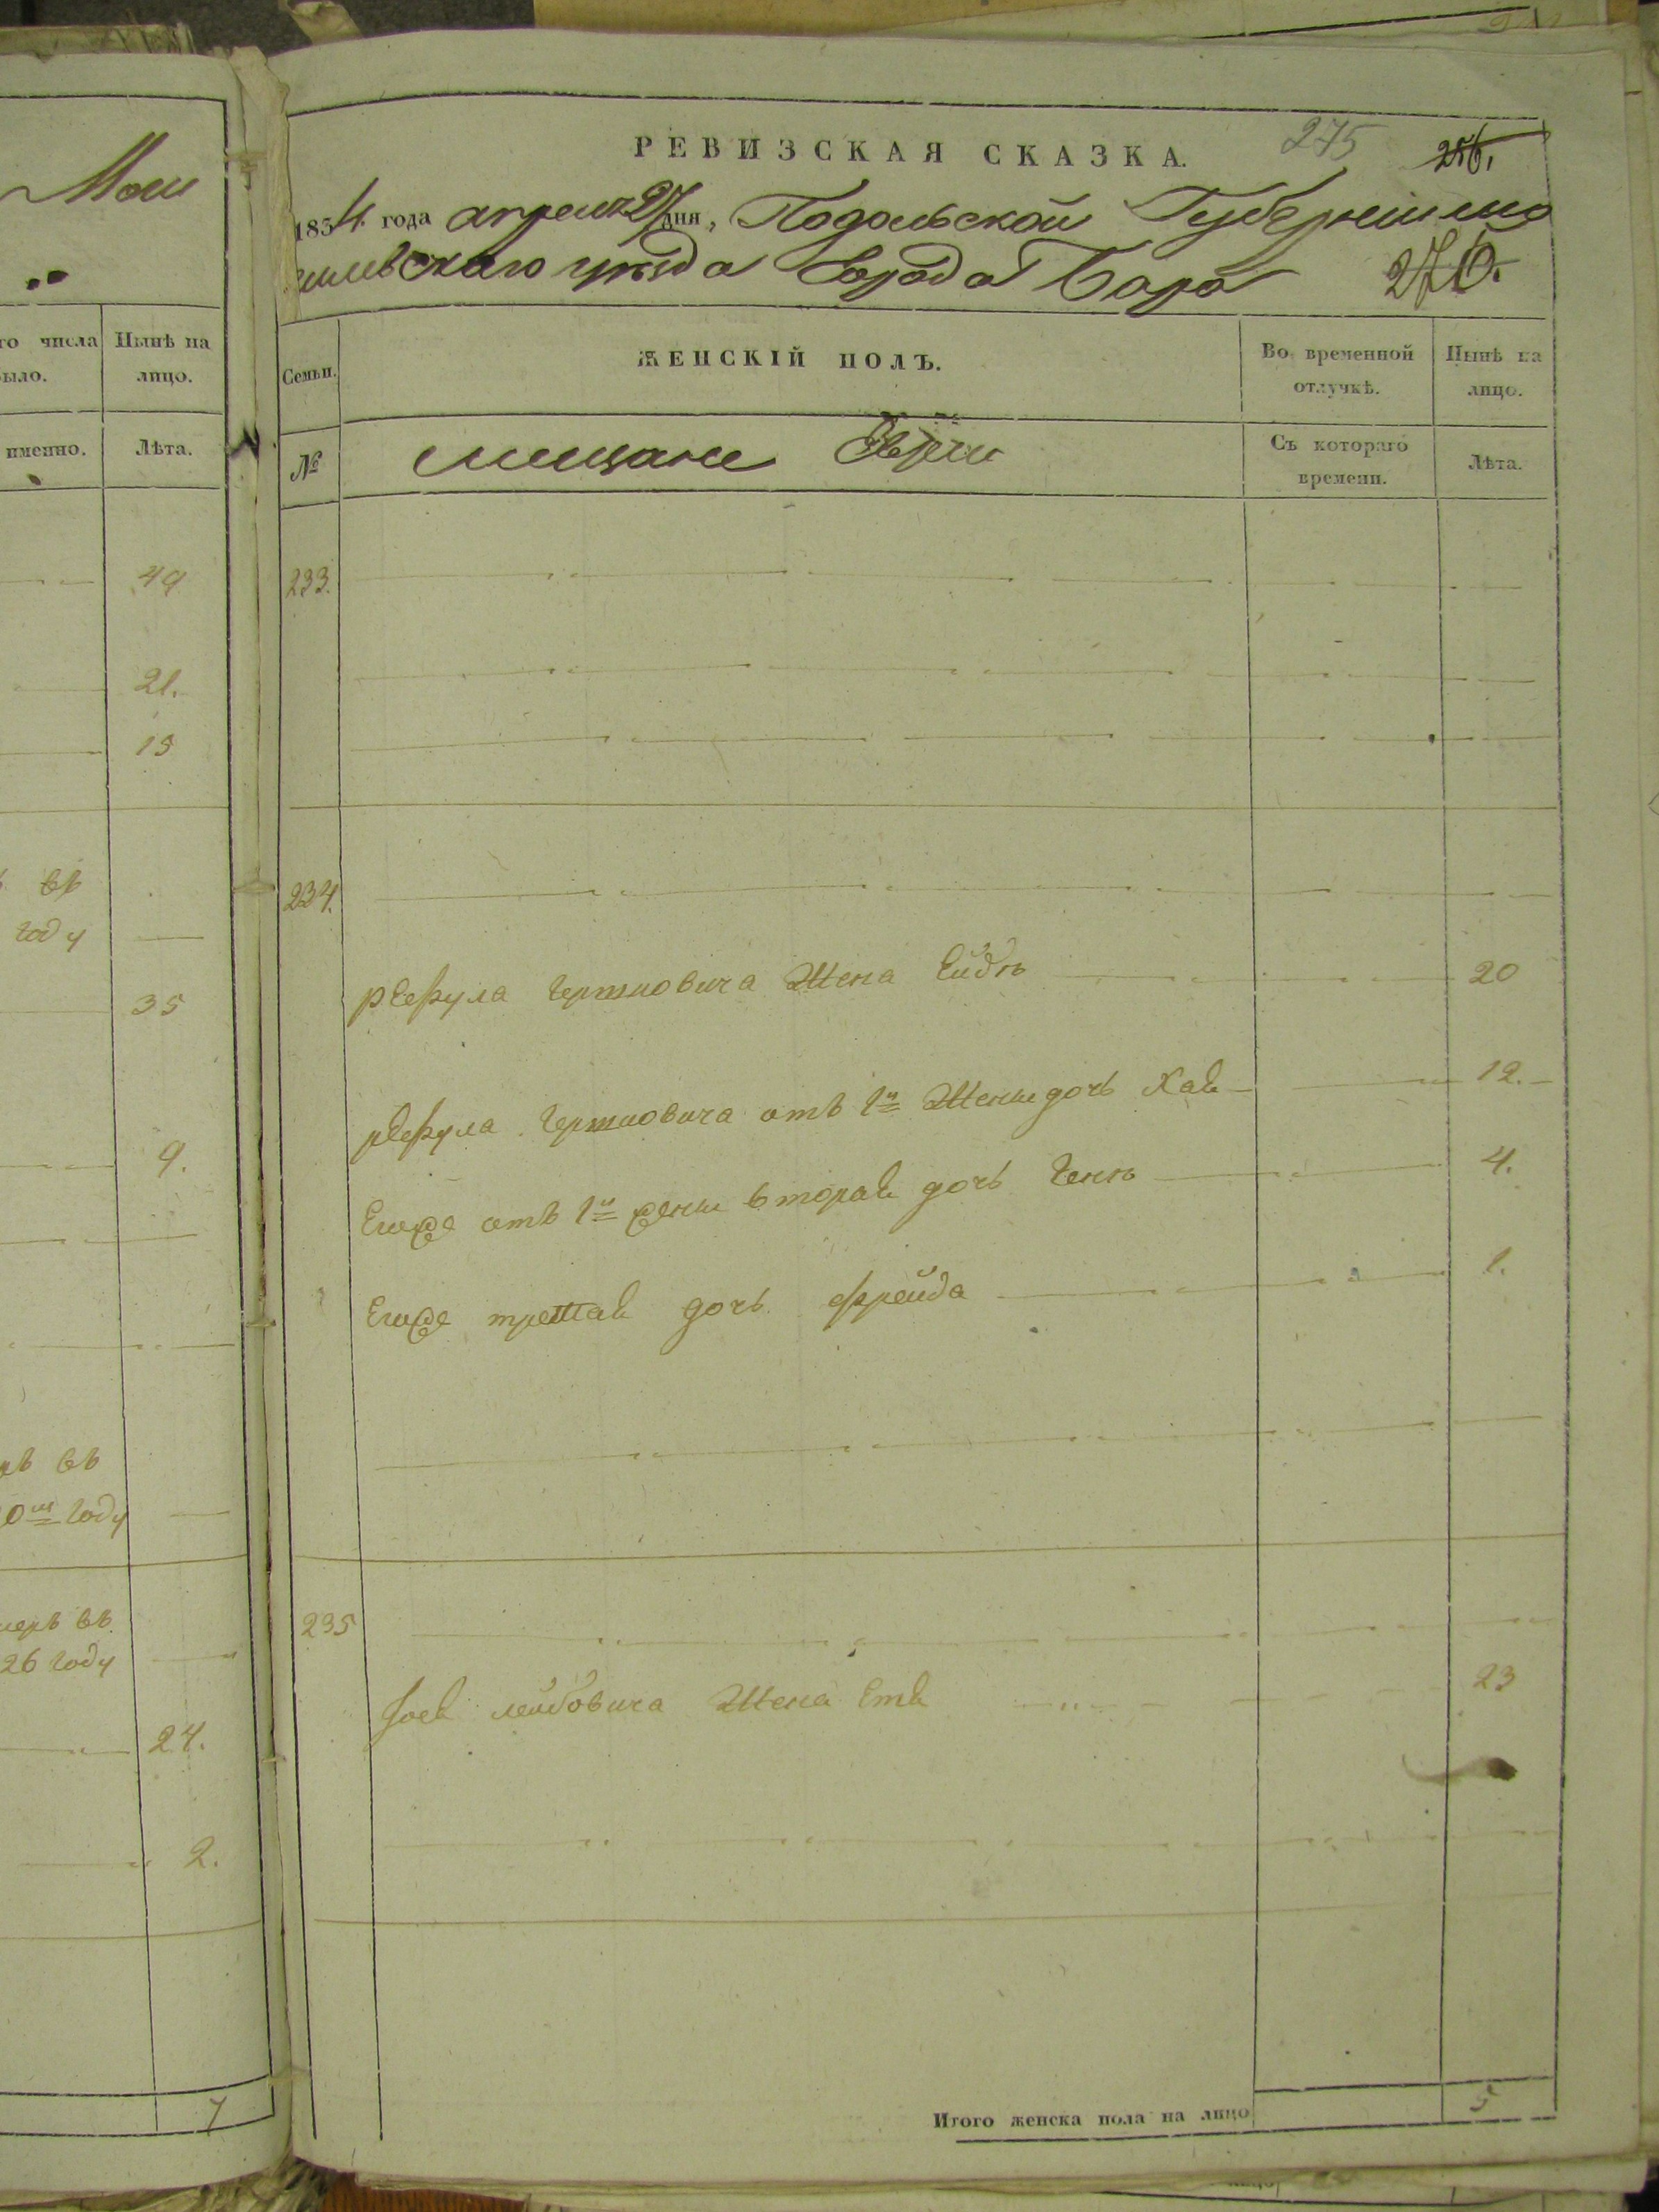 Мои
го числа Нынѣ на
было. лицо.
именно. Лѣта.
49
21.
15
въ
году
35
9.
въ
0ш году
умеръ въ
26 году
24.
2.
7
РЕВИЗСКАЯ СКАЗКА.
275 256.
1854 года апреля 27 дня, Подольской Губерніи мо
гилевскаго уѣзда города Бара 276.
Семьи. ЖЕНСКІЙ ПОЛЪ. Во временной отлучкѣ. Нынѣ на лицо.
№ мещане Евреи Съ котораго времени. Лѣта.
233.
234.
Гершковича Жена Ейдя 20
Гершковича отъ 1й Жены дочь Хая 12.
Егоже отъ 1й жены вторая дочь Геня 4.
Егоже третая дочь фрейда 1.
235
лейбовича Жена Етя 23
Итого женска пола на лицо 5